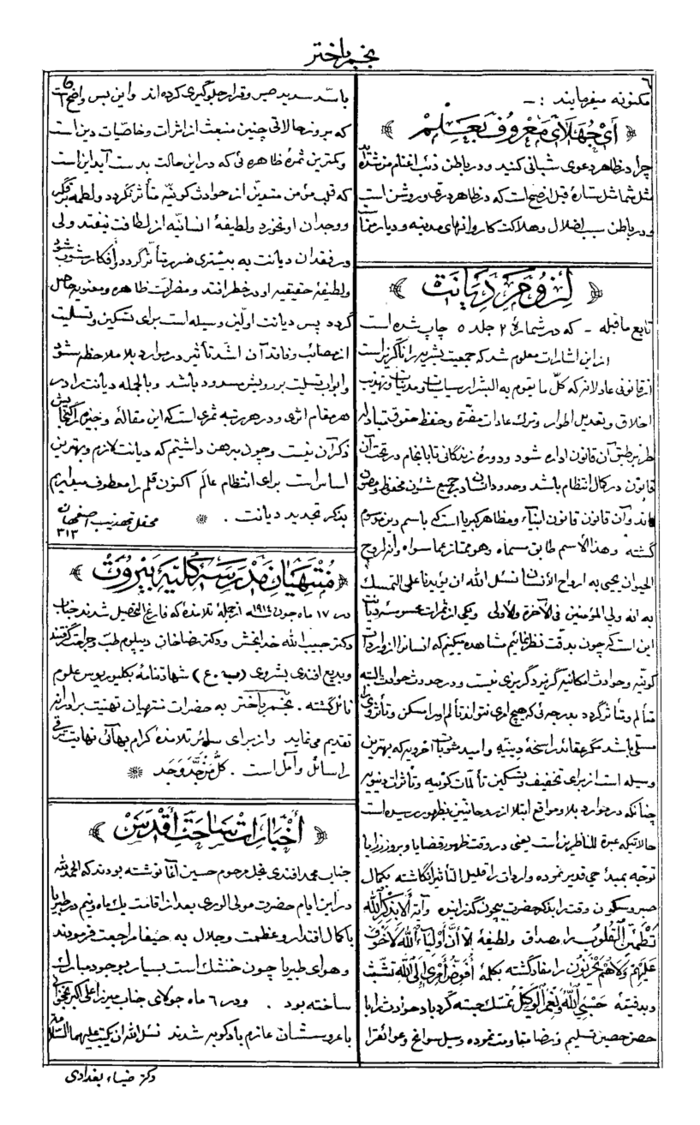 نجم باختر
٦
مکنونه میفرمایند : ـ
﴿ ای جهلای معروف بعلم ﴾
چرا در ظاهر دعوی شبانی کنید و در باطن ذئب اغنام من شده‌اید
مثل شما مثل ستارهٔ قبل از صبح است که در ظاهر درّی و روشن است
و در باطن سبب اضلال و هلاکت کاروانهای مدینه و دیار منا
﴿ لزوم دیانت ﴾
تابع ماقبله ـ که در شمارهٔ ۲ جلد ۵ چاپ شده است
از این اشارات معلوم شد که جمعیت بشریه را ناگزیر است
از قانونی عادلانه که کل ما یقوم به البشر از سیاسات و مدنیات و تهذیب
اخلاق و تعدیل اطوار و ترک عادات مضرّه و حفظ حقوق متبادله
طرّاً بر طبق آن قانون اداره شود و دورهٔ زندگانی تا بانجام در تحت آن
قانون در کمال انتظام باشد و حدود انسان در جمیع شئون محفوظ و مصون
ماند و آن قانون قانون انبیاء و مظاهر کبریا است که باسم دین موسوم
گشته وهذا الاسم طابق مسماه وهو ممتاز عما سواه وانه لروح
الحیوان یحیی به ارواح الانسان نسئل الله ان یؤیدنا علی التمسک
به انه ولی المؤمنین فی الآخرة والاولی و یکی از ثمرات محسوسهٔ دیانت
این است که چون بدقت نظر نمائیم مشاهده میکنیم که انسان را از واردات
کونیه و حوادث امکانیه گریز و گریزی نیست و در حدوث حوادث البته
متألم و متأثر گردد بدرجه‌ئی که هیچ امری نتواند تألم او را سکن و تأثر او را
مسلی باشد مگر عقائد راسخهٔ دینیه و امید مثوبات اخرویه که بهترین
وسیله است از برای تخفیف و تسکین تألمات کونیه و تأثرات دنیویه
چنانکه در موارد بلا و مواقع ابتلا از روحانیین بظهور رسیده است
حالاتیکه عبرة للناظرین است یعنی در وقت ظهور قضایا و بروز رزایا
توجه بمبدء حیّ قدیر نموده واردات را قلیل التأثیر انگاشته بکمال
صبر و سکون وقت را بدکر حضرت بیچون گذرانده و آیهٔ ألا بذکر الله
تطمئن القلوب را مصداق و لطیفهٔ ألا انّ اولیاء الله لا خوف
علیهم ولا هم یحزنون را مفاد گشته بکلمهٔ افوّض امری الی الله تشبث
و بدفتهٔ حسبی الله ونعم الوکیل تمسک جسته گردباد حوادث را با
حصن حصین تسلیم و رضا مقاومت نموده و سیل سوانح و عوائق را
با سدّ سدید صبر و قرار جلوگیری کرده‌اند و این بس واضح است
که بروز حالاتی چنین منبعث از اثرات و خاصیات دین است
و کمترین ثمرهٔ ظاهره ئی که در این حالت بدست آید این است
که قلب مؤمن متدین از حوادث کونیه متأثر نگردد و لطمه بر فکر
و وجدان او نخورد و لطیفهٔ انسانیه از لطافت نیفتد ولی
در فقدان دیانت به بیشتری ضرر متأثر گردد افکار مشوب شود
و لطیفهٔ حقیقیه او در خطر افتد و مضرات ظاهره و معنویه حاصل
گردد پس دیانت اولین وسیله است برای تسکین و تسلیت
از مصائب و فاقد آن اشد تأثیر در موارد بلا ملاحظه شود
و ابواب تسلیت بر رویش مسدود باشد و بالجمله دیانت را در
هر مقام اثری و در هر رتبه ثمری است که این مقالهٔ وجیزه گنجایش
ذکر آن نیست و چون مبرهن داشتیم که دیانت لازم و بهترین
اساس است برای انتظام عالم اکنون قلم را معطوف میداریم
بذکر تجدید دیانت .
محفل تهذیب اصفهان
۳۱۳
﴿ منتهیان مدرسه کلیه بیروت ﴾
در ۱۷ ماه جون ۱۹۱۴ از جمله تلامذه که فارغ التحصیل شدند جناب
دکتر حبیب الله خدابخش و دکتر رضاخان دیپلوم طب و جراحت گرفتند
و بدیع افندی بشروی (ب.ع) شهادتنامه بکلیوریوس علوم
نائل گشته . نجم باختر به حضرات منتهیان تهنیت برادرانه
تقدیم می‌نماید و از برای سائر تلامذهٔ کرام بهائی نهایت ترقی
را سائل و آمل است . کلّ من جدّ وجد
﴿ اخبارات ساحت اقدس ﴾
جناب محمد افندی نجل مرحوم حسین آقا نوشته بودند که الحمد لله
در این ایام حضرت مولی الوری بعد از اقامت یک ماه و نیم در طبریا
با کمال اقتدار و عظمت و جلال به حیفا مراجعت فرمودند
و هوای طبریا چون خشک است بسیار بوجود مبارک
ساخته بود . و در ٦ ماه جولای جناب میرزا علی اکبر نخجوانی
با عروسشان عازم بادکوبه شدند نسئل الله ان یکتب علیهما السلامة
دکتر ضیاء بغدادی